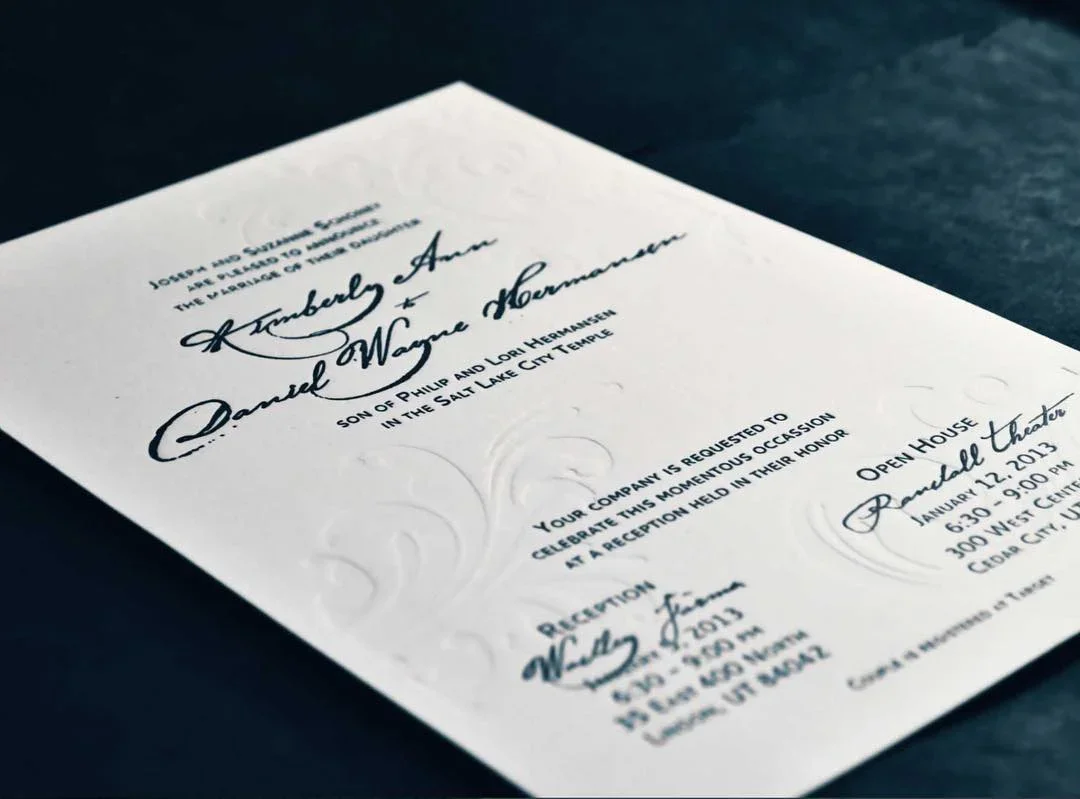 Joseph and Suzanne
are pleased to announce
the marriage of their daughter
Kimberly Ann
to
Daniel Wayne Hermansen
son of Philip and Lori Hermansen
in the Salt Lake City Temple
Your company is requested to
celebrate this momentous occassion
at a reception held in their honor
Reception
2013
6:30 - 9:00 pm
35 East 400 North
Lindon, UT 84042
Open House
Randall Theater
January 12, 2013
6:30 - 9:00 pm
300 West Cente
Cedar City, UT
Couple is registered at Target